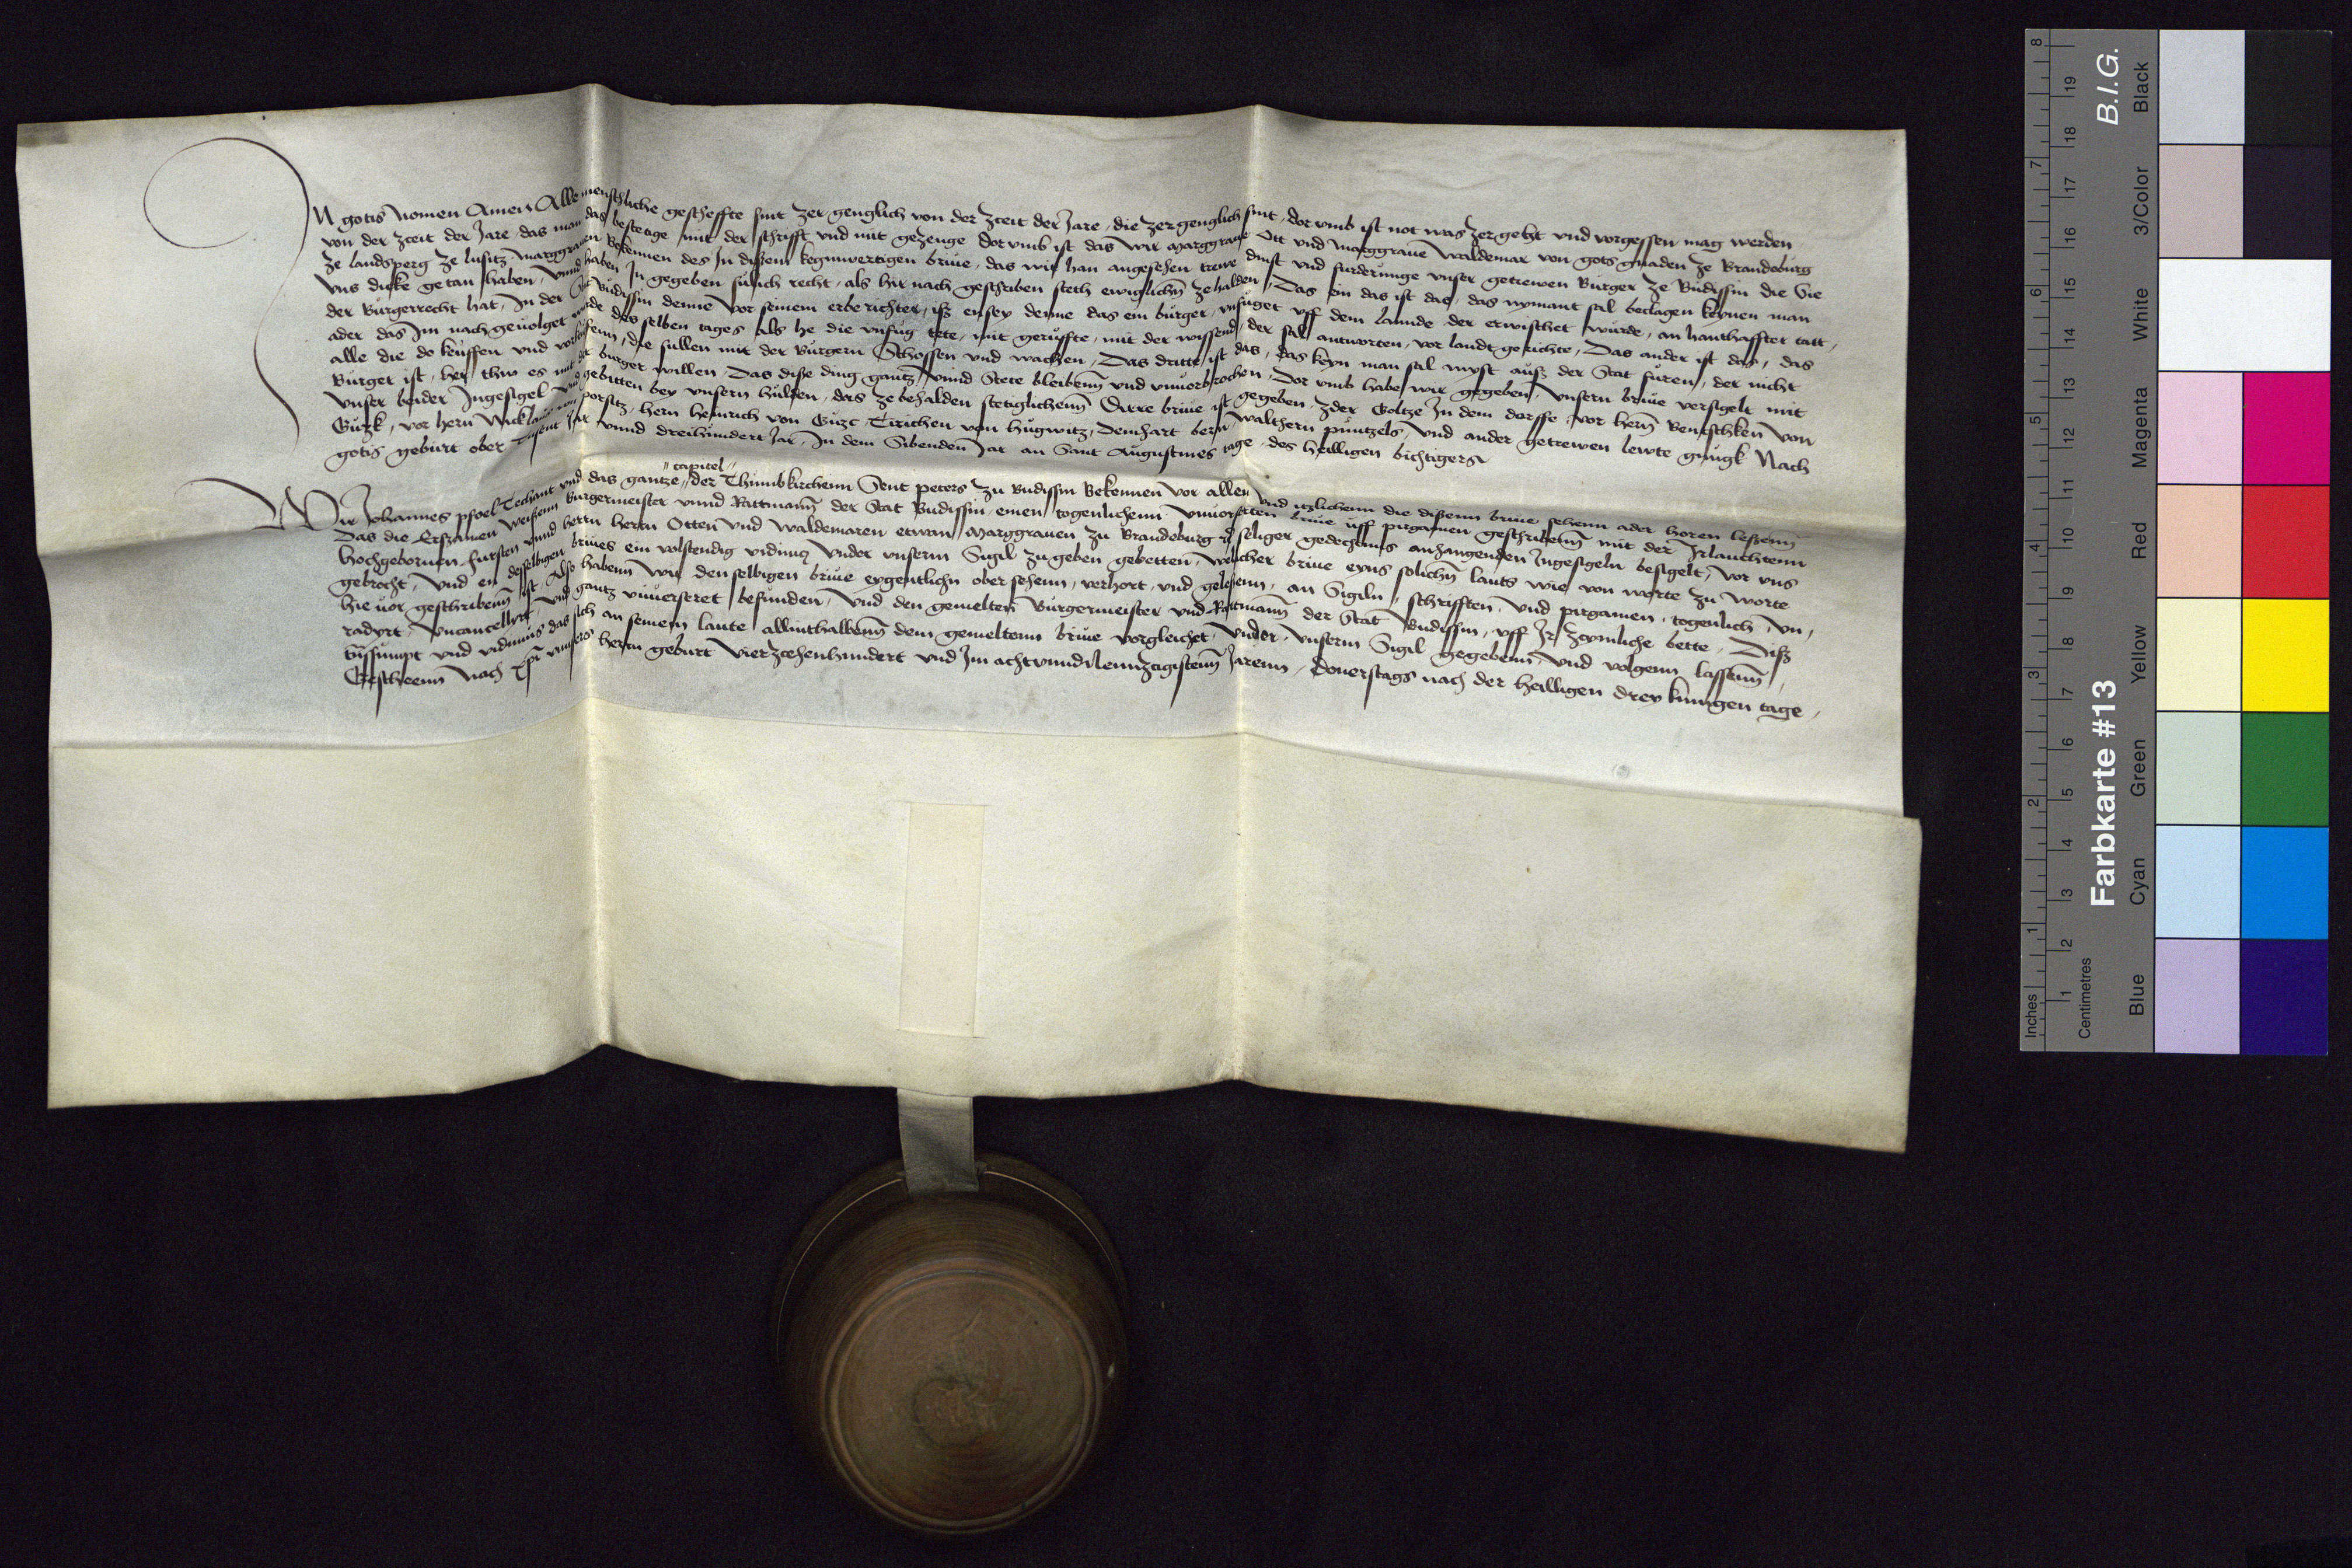 IN gotis nomen Amen Alle menschliche gescheffte sint zer genglich von der zceit der Jare, die zergenglich sint, dor vmb ist not was zergeht vnd vorgessen mag werden
von der zceit der Jare, das man das bestetige mit der schrifft vnd mit gezeuge dorvmb ist das wir Marggraue Ott vnd Marggraue Waldemar von gots gnaden ze Brandeburg
ze landsperg ze lusitz Marggrauen Bekennen des In dißem keginwertigen briue, das wir han angesehen trewe dinst vnd furderunge vnser getrewen Burger ze Budissin die Sie
vns dicke getan haben, vnnd haben In gegeben sulich recht, als hir nach geschriben steth ewiglichn̄ ze halden, Das ein das ist das, das nymant sal beclagen keynen man
der Burgerrecht hat, In der Stat Budissin denne vor seinem erbe richter, iß ensey denne das ein burger, vnfuget vff dem lannde der erwischet wurde, an hanthaffter tatt,
ader das Im nachgeuolget wurde des selben tages als he die vnfug tete, mit geruffte, mit der wissend, der sal antworten, vor landt gerichte, Das ander ist das, das
alle die do keuffen vnd vorkeufenn, die sullen mit der Burgern Schossen vnd wachen, Das dritte ist das, das keyn man sal myst auß der Stat furen, der nicht
Burger ist, her thw es mit der burger willen, Das diße ding gantz vnnd Stete bleibenn̄ vnd vnuorbrochen, Dor vmb habe wir gegeben, vnsern briue versigelt mit
vnser beider Ingesigel vnd gebitten bey vnsern hulden, das ze behalden stetiglichenn̄ Dirre briue ist gegeben, zder Goltze In dem dorffe, vor hern̄ Bentschken von
Guzk, vor hern Nicklaus von porsitz, hern heinrich von Guzc, Tirichen von hugwitz, Demhart bern Walthern puntzels, vnd ander getrewen lewte gnugk Nach
gotis geburt ober Tusent Jar vnnd dreihundert Jar, In dem Sibenden Jar an Sant Augustines tage, des heilligen bichtigers
"capitel"
Wir Johannes pfoel Techant vnd das gantze der Thumbkirchenn Sent peters zu Budissin Bekennen vor allen vnd itzlichenn die dißenn briue sehenn ader horen leßenn
Das die Erßamen weißenn Burgermeister vnnd Rattmann̄ der Stat Budissin einen togenlichenn vnuorserten briue vff pirgamen geschribenn̄ mit der Irlauchtenn
hochgebornen fursten vnnd herrn herrn Otten vnd Waldemaren etwan Marggrauen zu Brandeburg seliger gedechtnis anhangenden Ingesigeln besigelt, vor vns
gebrocht, vnd en desselbigen briues ein volstendig vidimus vnder vnserm Sigil zugeben gebetten, welicher briue eyns solichn̄ lauts wie von worte zu worte
hie vor geschribenn̄ ist, Also habenn wir denselbigen briue eygentlichn ober sehenn, verhort, vnd gelesenn, an Sigiln, schrifften, vnd pirgamen, togenlich, vn,
radyrt, vncancellyrt, vnd gantz vnuerseret befunden, vnd den gemelten Burgermeister vnd Rattmann̄ der Stat Budissin, vff Ir zcymliche bette, Diß
trāssumpt vnd vidimus das sich an seinem laute allinthalbenn̄ dem gemeltenn briue vorgleichet, vnder, vnserm Sigil gegebenn vnd volgenn lassenn̄,
Gescheenn̄ Nach Xpī vnsers herrn geburt Vierzcehenhundert vnd Im achtvnndNeunzcigistenn̄ Jarenn, Donerstags nach der heilligen drey kunigen tage,
Inches
Centimetres
1 2 3 4 5 6 7 8
1 2 3 4 5 6 7 8 9 10 11 12 13 14 15 16 17 18 19
Farbkarte #13
B.I.G.
Blue Cyan Green Yellow Red Magenta White 3/Color Black